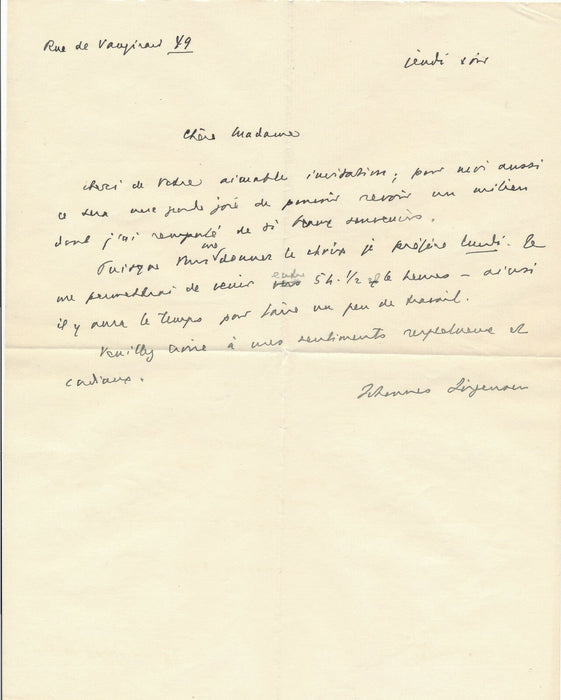 Rue de Vaugirard 49
jeudi soir
Chère Madame
Merci de votre aimable invitation; pour moi aussi
ce sera une grande joie de pouvoir revoir un milieu
dont j'ai remporté de si beaux souvenirs.
Puisque Vous me donnez le choix je préfère lundi. Je
me permettrai de venir entre 5 h. 1/2 et 6 heures – ainsi
il y aura le temps pour faire un peu de travail.
Veuillez croire à mes sentiments respectueux et
cordiaux.
Johannes Jörgensen